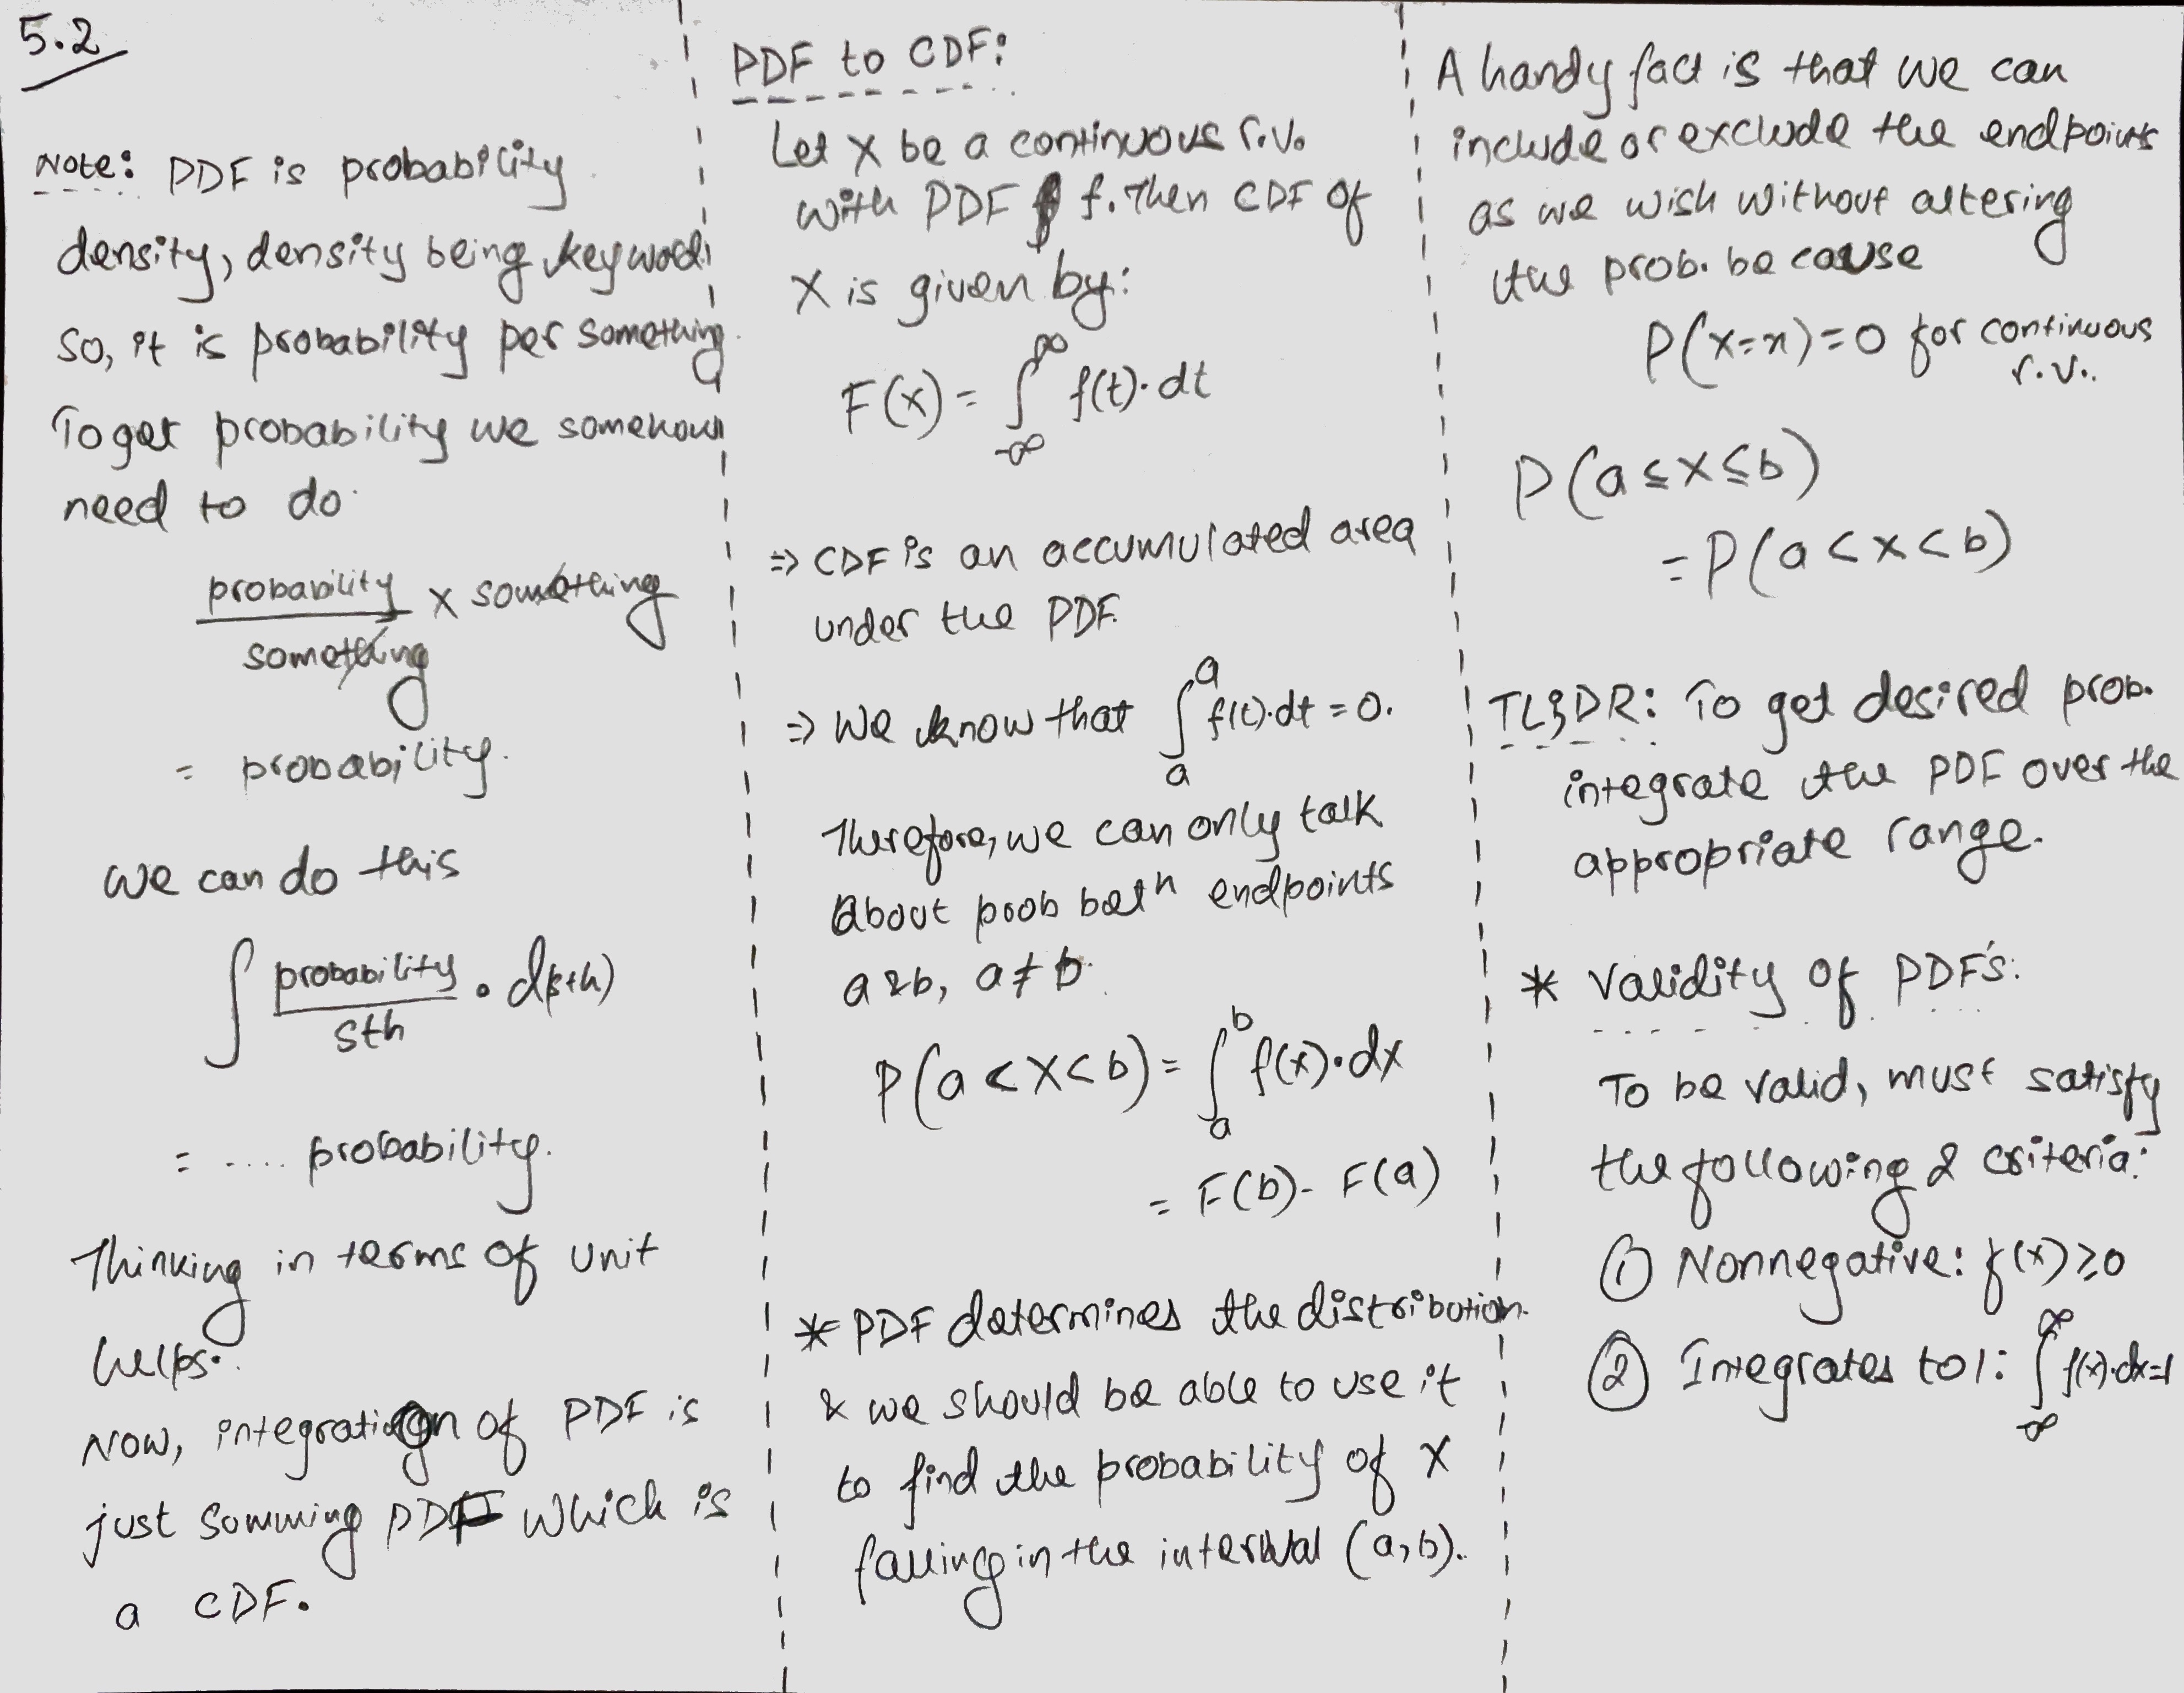 5.2
Note: PDF is probability
density, density being keyword.
So, it is probability per something.
To get probability we somehow
need to do
probability / something × something
= probability.
We can do this
∫ probability / sth · d(sth)
= .... probability.
Thinking in terms of unit
helps.
Now, integration of PDF is
just summing PDF which is
a CDF.
PDF to CDF:
Let X be a continuous r.v.
with PDF f. Then CDF of
X is given by:
F(x) = ∫_{-∞}^{∞} f(t)·dt
⇒ CDF is an accumulated area
under the PDF.
⇒ We know that ∫_a^a f(t)·dt = 0.
Therefore, we can only talk
About prob betⁿ endpoints
a & b, a ≠ b.
P(a < X < b) = ∫_a^b f(x)·dx
= F(b) - F(a)
* PDF determines the distribution
& we should be able to use it
to find the probability of X
falling in the interval (a, b).
A handy fact is that we can
include or exclude the endpoints
as we wish without altering
the prob. because
P(X=x) = 0 for continuous
r.v..
P(a ≤ X ≤ b)
= P(a < X < b)
TL;DR: To get desired prob.
integrate the PDF over the
appropriate range.
* Validity of PDF's:
To be valid, must satisfy
the following 2 criteria:
① Nonnegative: f(x) ≥ 0
② Integrates to 1: ∫_{-∞}^{∞} f(x)·dx = 1